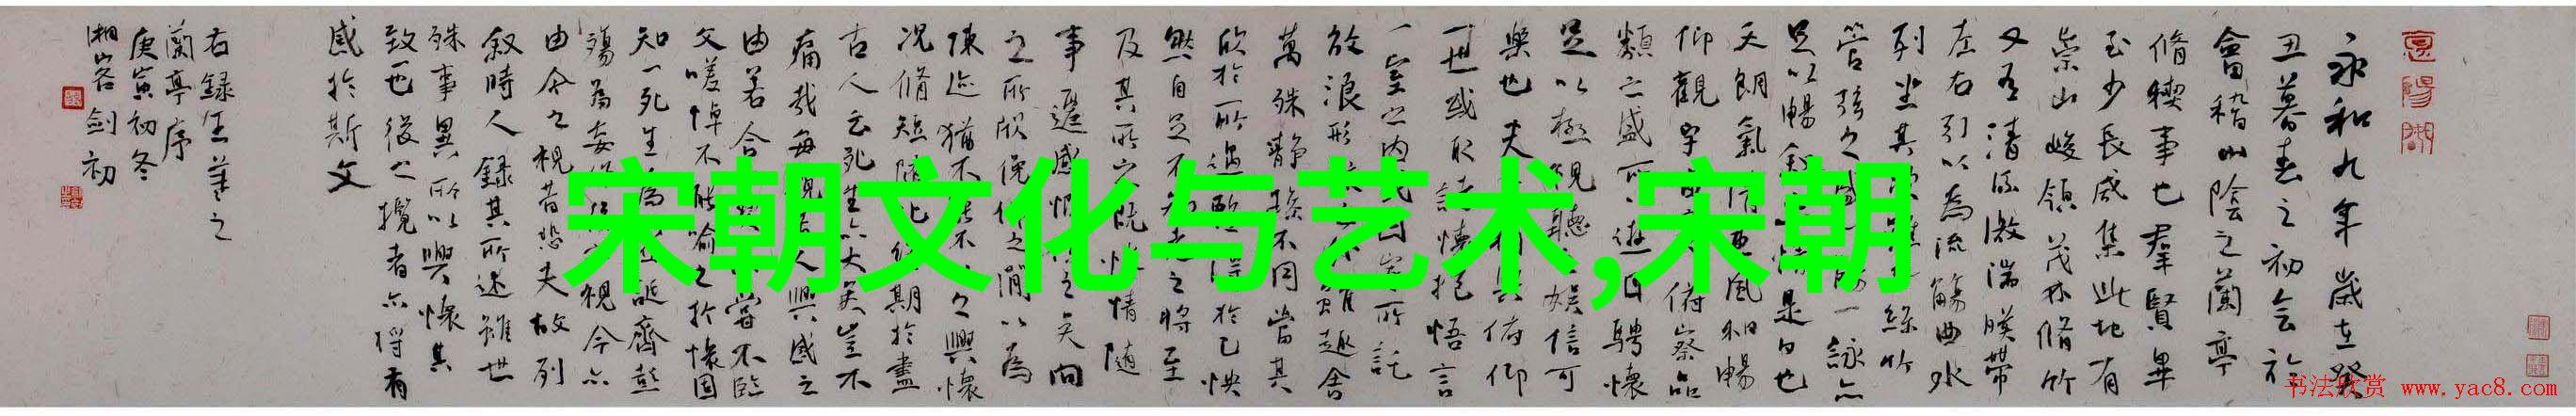 永和九年歲在癸
丑暮春之初会於
會稽山陰之蘭亭
脩禊事也羣賢畢
至少長咸集此地有
崇山峻領茂林脩竹
又有清流激湍暎帶
左右引以為流觴曲水
列坐其
絲竹
管弦之盛一
詠亦
足以暢叙
是日也
天朗氣
風和暢
仰觀宇
俯察品
類之盛所
遊目騁懷
足以極視聽
娛信可
樂也夫
俯仰
一世或取諸懷抱悟言
一室之内
所託
放浪形
雖趣舍
萬殊靜躁不同當其
欣於所遇
得於己怏
然自足不
老之將至
及其所之既
情隨
事遷感慨
之矣向
之所欣俛仰之間以為
陳迹猶不
之興懷
况脩短隨化
期於盡
古人云死生亦大矣豈不
痛哉每
人興感之
由若合
嘗不臨
文嗟悼不能喻之於懷固
知一死生為
誕齊彭
殤為妄
視今亦
由今之視昔悲夫故列
叙時人録其所述雖世
殊事異所以興懷其
致一也後之攬者亦将有
感於斯文
右録王羲之
蘭亭序
庚寅初冬
湘客剑初
宋朝文化与艺术,宋朝
书法欣赏 www.yac8.com